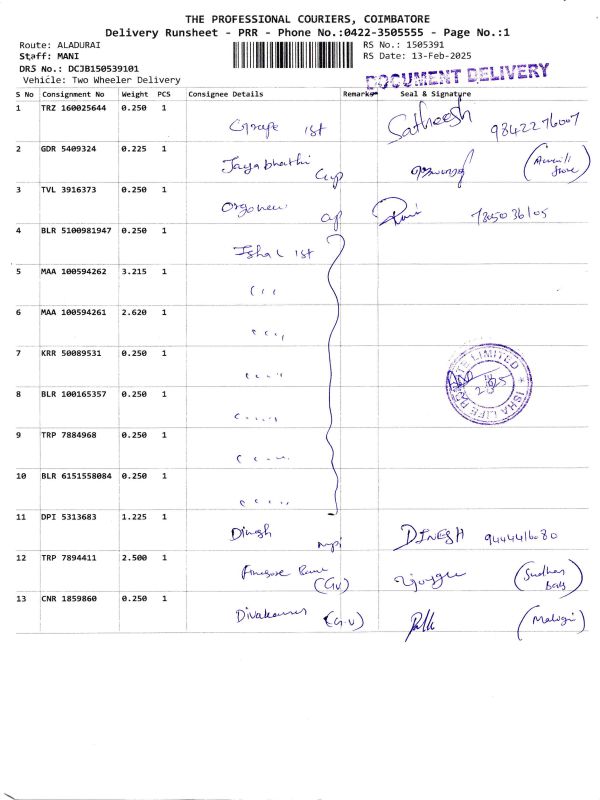 THE PROFESSIONAL COURIERS, COIMBATORE
Delivery Runsheet - PRR - Phone No.:0422-3505555 - Page No.:1
Route: ALADURAI RS No.: 1505391
Staff: MANI RS Date: 13-Feb-2025
DRS No.: DCJB150539101
Vehicle: Two Wheeler Delivery
DOCUMENT DELIVERY
S No Consignment No Weight PCS Consignee Details Remarks Seal & Signature
1 TRZ 160025644 0.250 1 1st Satheesh 9842276007
2 GDR 5409324 0.225 1
3 TVL 3916373 0.250 1
4 BLR 5100981947 0.250 1 Isha 1st
5 MAA 100594262 3.215 1
6 MAA 100594261 2.620 1
7 KRR 50089531 0.250 1
8 BLR 100165357 0.250 1
ISHA LIFE LIMITED
9 TRP 7884968 0.250 1
10 BLR 6151558084 0.250 1
11 DPI 5313683 1.225 1 Dinesh DINESH 9444416080
12 TRP 7894411 2.500 1 (GV)
13 CNR 1859860 0.250 1 Divakaran (G.V)